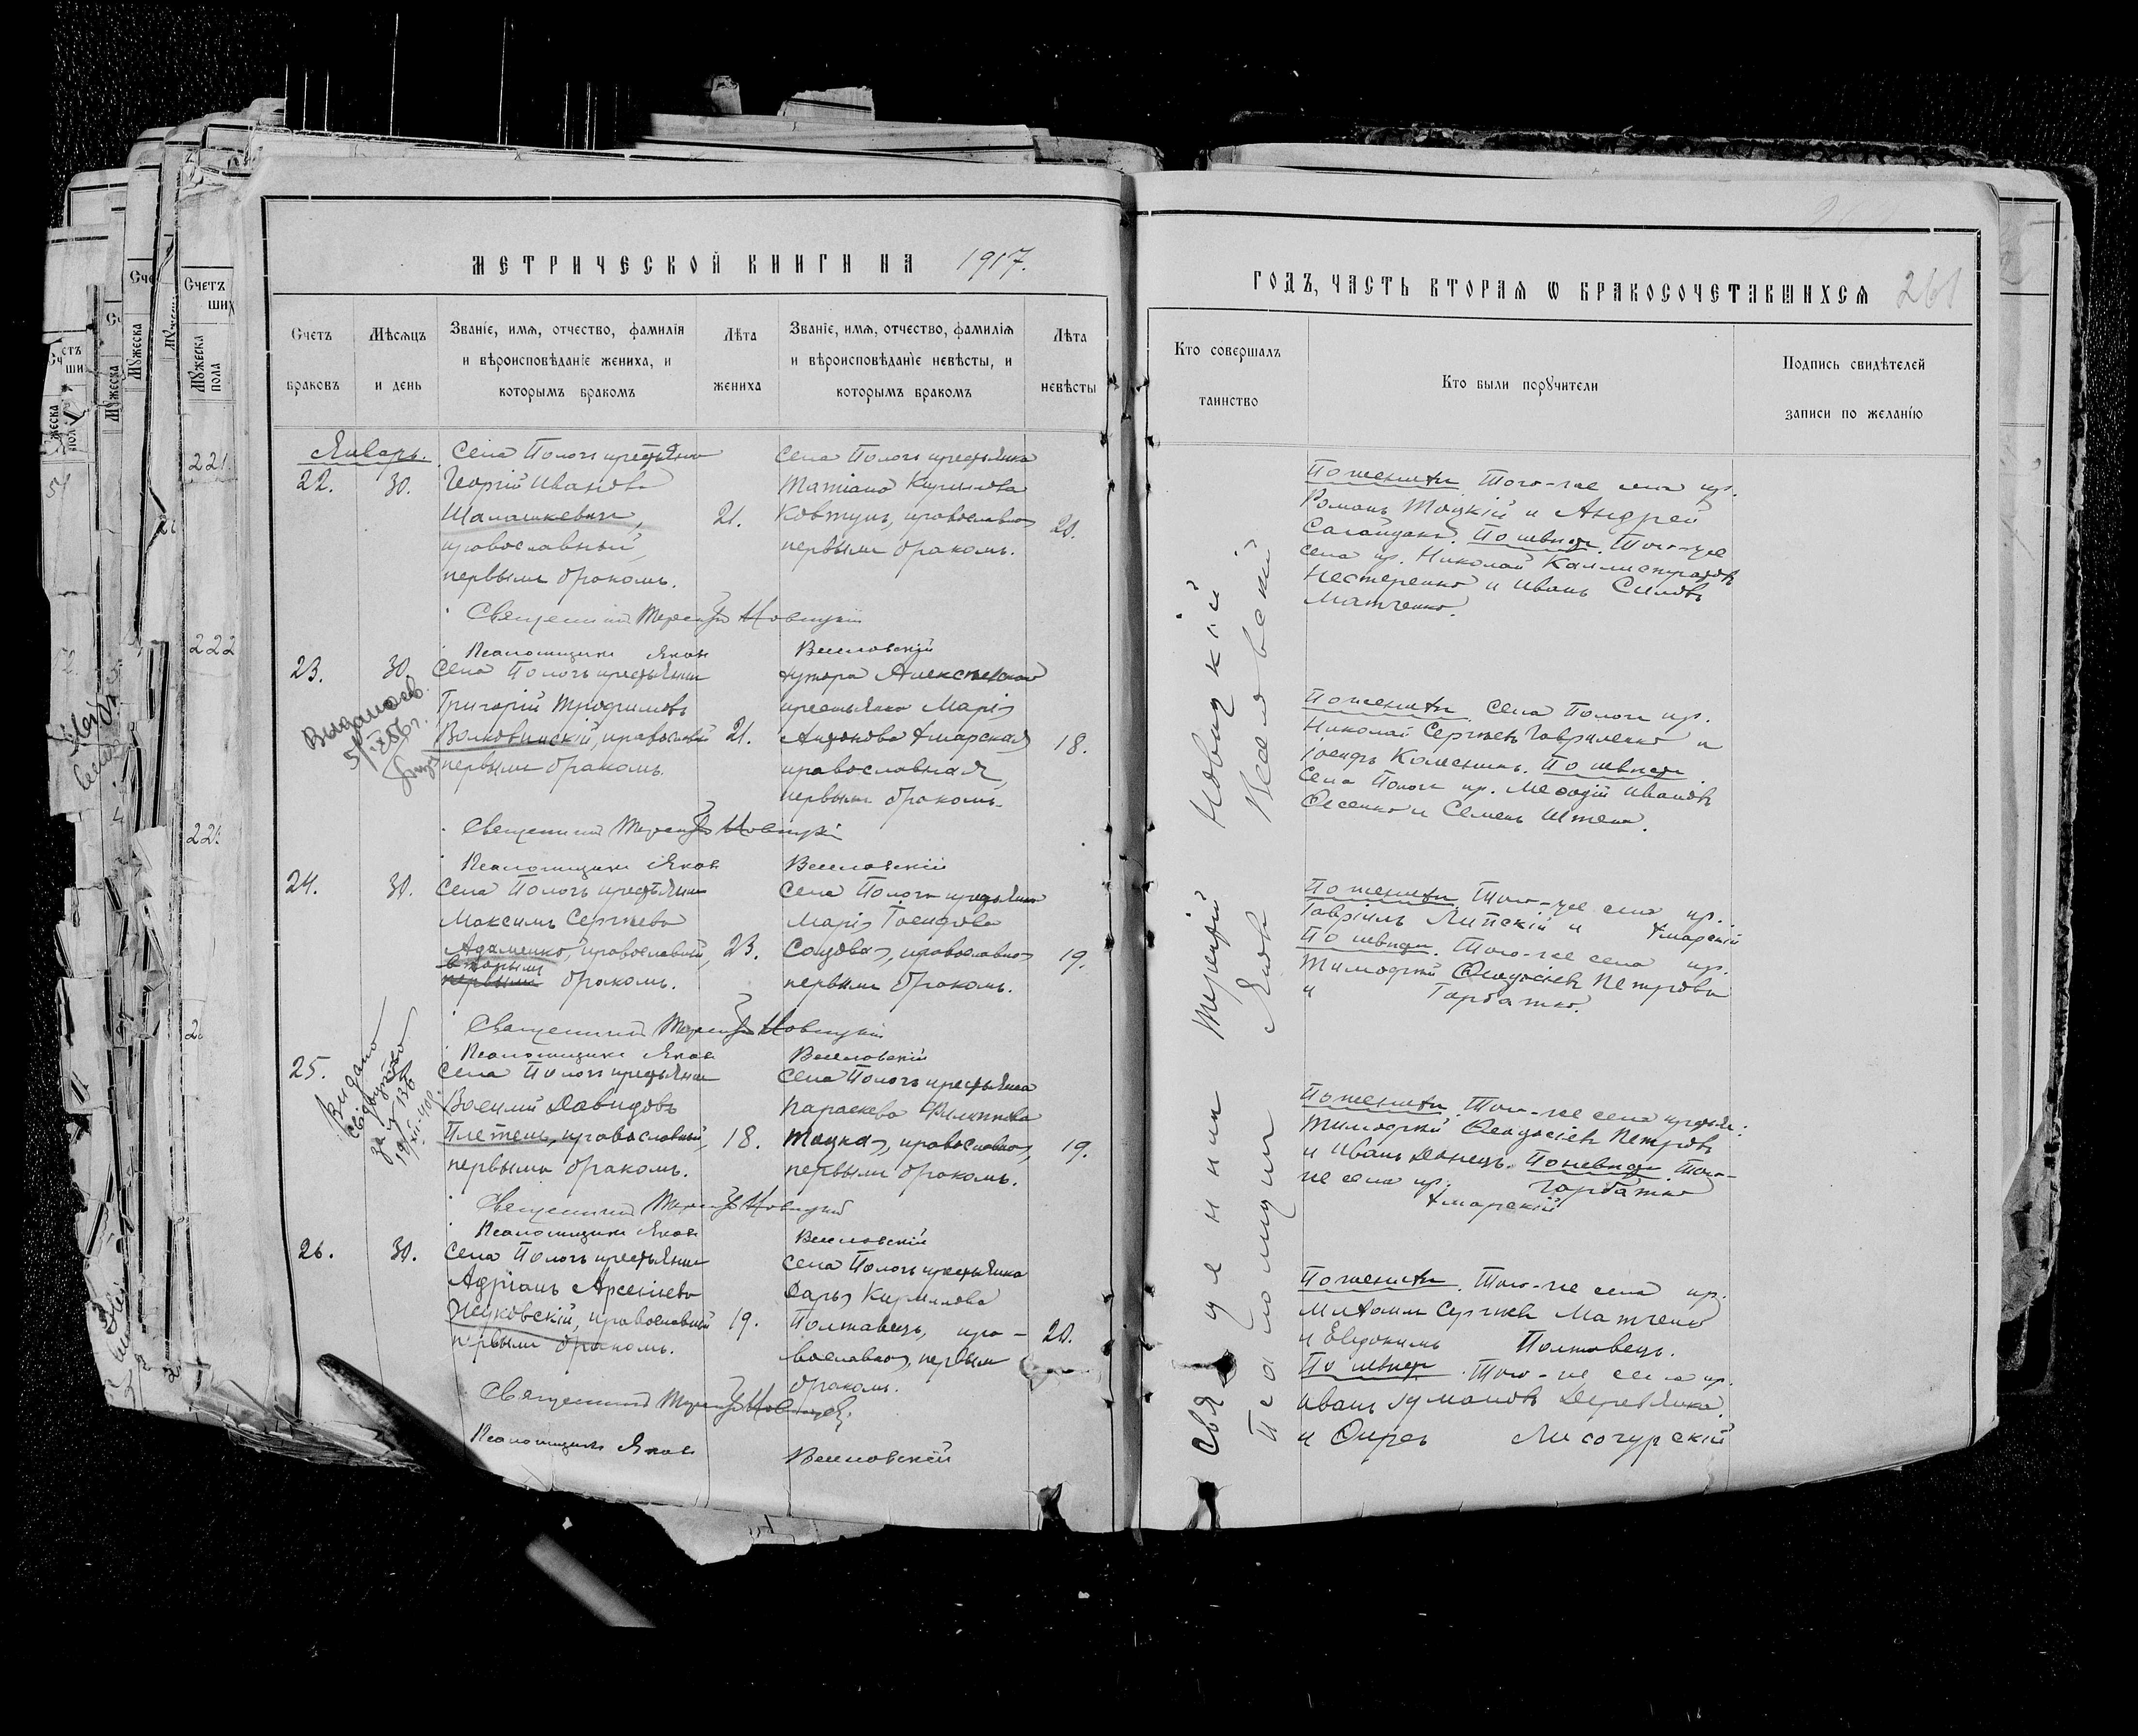 МЕТРИЧЕСКОЙ КНИГИ НА 1917.
Счетъ браковъ
Мѣсяцъ и день
Званіе, имя, отчество, фамилія
и вѣроисповѣданіе жениха, и
которымъ бракомъ
Лѣта жениха
Званіе, имя, отчество, фамилія
и вѣроисповѣданіе невѣсты, и
которымъ бракомъ
Лѣта невѣсты
Январь.
22. 30.
Села Пологъ крестьянинъ
Георгій Ивановъ
Шалашкевичъ,
православный,
первымъ бракомъ.
21.
Села Пологъ крестьянка
Татіана Кирилова
Ковтунъ, православная
первымъ бракомъ.
20.
Священникъ Терентій Новицкій
Псаломщикъ Яковъ Веселовскій
23. 30.
Села Пологъ крестьянинъ
Григорій Трофимовъ
Волковинскій, православный
первымъ бракомъ.
21.
хутора
крестьянка Марія
Хмарская
православная,
первымъ бракомъ.
18.
Священникъ Терентій Новицкій
Псаломщикъ Яковъ Веселовскій
24. 30.
Села Пологъ крестьянинъ
Максимъ Сергѣевъ
Адаменко, православный,
вторымъ
первымъ бракомъ.
23.
Села Пологъ крестьянка
Марія Іосифова
православная
первымъ бракомъ.
19.
Священникъ Терентій Новицкій
Псаломщикъ Яковъ Веселовскій
Видано
25.
Села Пологъ крестьянинъ
Василій Давидовъ
Плетень, православный,
первымъ бракомъ.
18.
Села Пологъ крестьянка
Параскева Филиппова
Тоцкая, православная,
первымъ бракомъ.
19.
Священникъ Терентій Новицкій
Псаломщикъ Яковъ Веселовскій
26. 30.
Села Пологъ крестьянинъ
Адріанъ Арсеніевъ
Жуковскій, православный
первымъ бракомъ.
19.
Села Пологъ крестьянка
Дарья Кирилова
Полтавецъ, пра-
вославная, первымъ
бракомъ.
20.
Священникъ Терентій Новицкій
Псаломщикъ Яковъ Веселовскій
ГОДЪ, ЧАСТЬ ВТОРАЯ Ѡ БРАКОСОЧЕТАВШИХСЯ 261
Кто совершалъ таинство
Кто были поручители
Подпись свидѣтелей
записи по желанію
Священникъ Терентій Новицкій
Псаломщикъ Яковъ Веселовскій
По женихѣ. Того-же села кр.
Романъ Тоцкій и Андрей
Сагайдакъ. По невѣстѣ. Того-же
села кр. Николай Каллистратовъ
Нестеренко и Иванъ Силовъ
Матченко.
По женихѣ. Села Пологъ кр.
Николай Сергѣевъ Гавриленко и
Іосифъ Колесникъ. По невѣстѣ.
Села Пологъ кр. Меѳодій Ивановъ
и Семенъ
По женихѣ. Того-же села кр.
Гавріилъ Липскій и Хмарскій
По невѣстѣ. Того-же села кр.
Тимофей Ѳеодосіевъ Петровъ
и Горбатко.
По женихѣ. Того-же села крестьяне:
Тимофей Ѳеодосіевъ Петровъ
и Иванъ Донецъ. По невѣстѣ. Того-
же села кр. Горбатко
Хмарскій
По женихѣ. Того-же села кр.
Михаилъ Сергѣевъ Матченко
и Евдокимъ Полтавецъ.
По невѣстѣ. Того-же села кр.
Иванъ Деревянко
и Лисогурскій